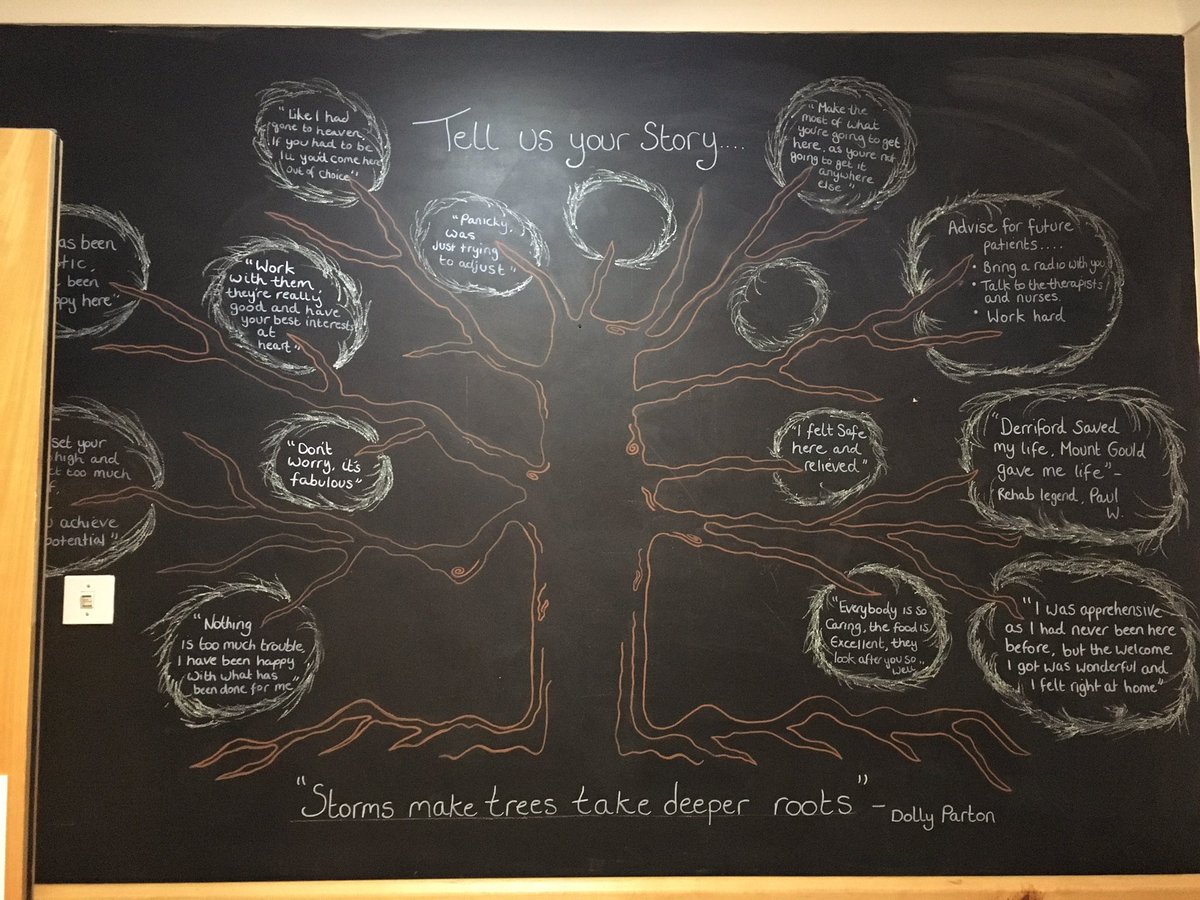 Tell us your Story....
"Like I had
gone to heaven,
If you had to be
Ill you'd come here
out of choice"
"Panicky,
was
Just trying
to adjust"
"Make the
most of what
you're going to get
here, as you're not
going to get it
anywhere
else"
been
been
here"
"Work
with them,
they're really
good and have
your best interests
at
heart"
Advise for future
patients....
• Bring a radio with you
• Talk to the therapists
and nurses.
• Work hard
set your
high and
too much
achieve
potential"
"Don't
worry, it's
fabulous"
"I felt Safe
here and
relieved"
"Derriford Saved
my life, Mount Gould
gave me life" -
Rehab legend, Paul
W.
"Nothing
Is too much trouble,
I have been happy
With what has
been done for me"
"Everybody is so
Caring, the food is
Excellent, they
look after you so
well"
"I was apprehensive
as I had never been here
before, but the welcome
I got was wonderful and
I felt right at home"
"Storms make trees take deeper roots" - Dolly Parton